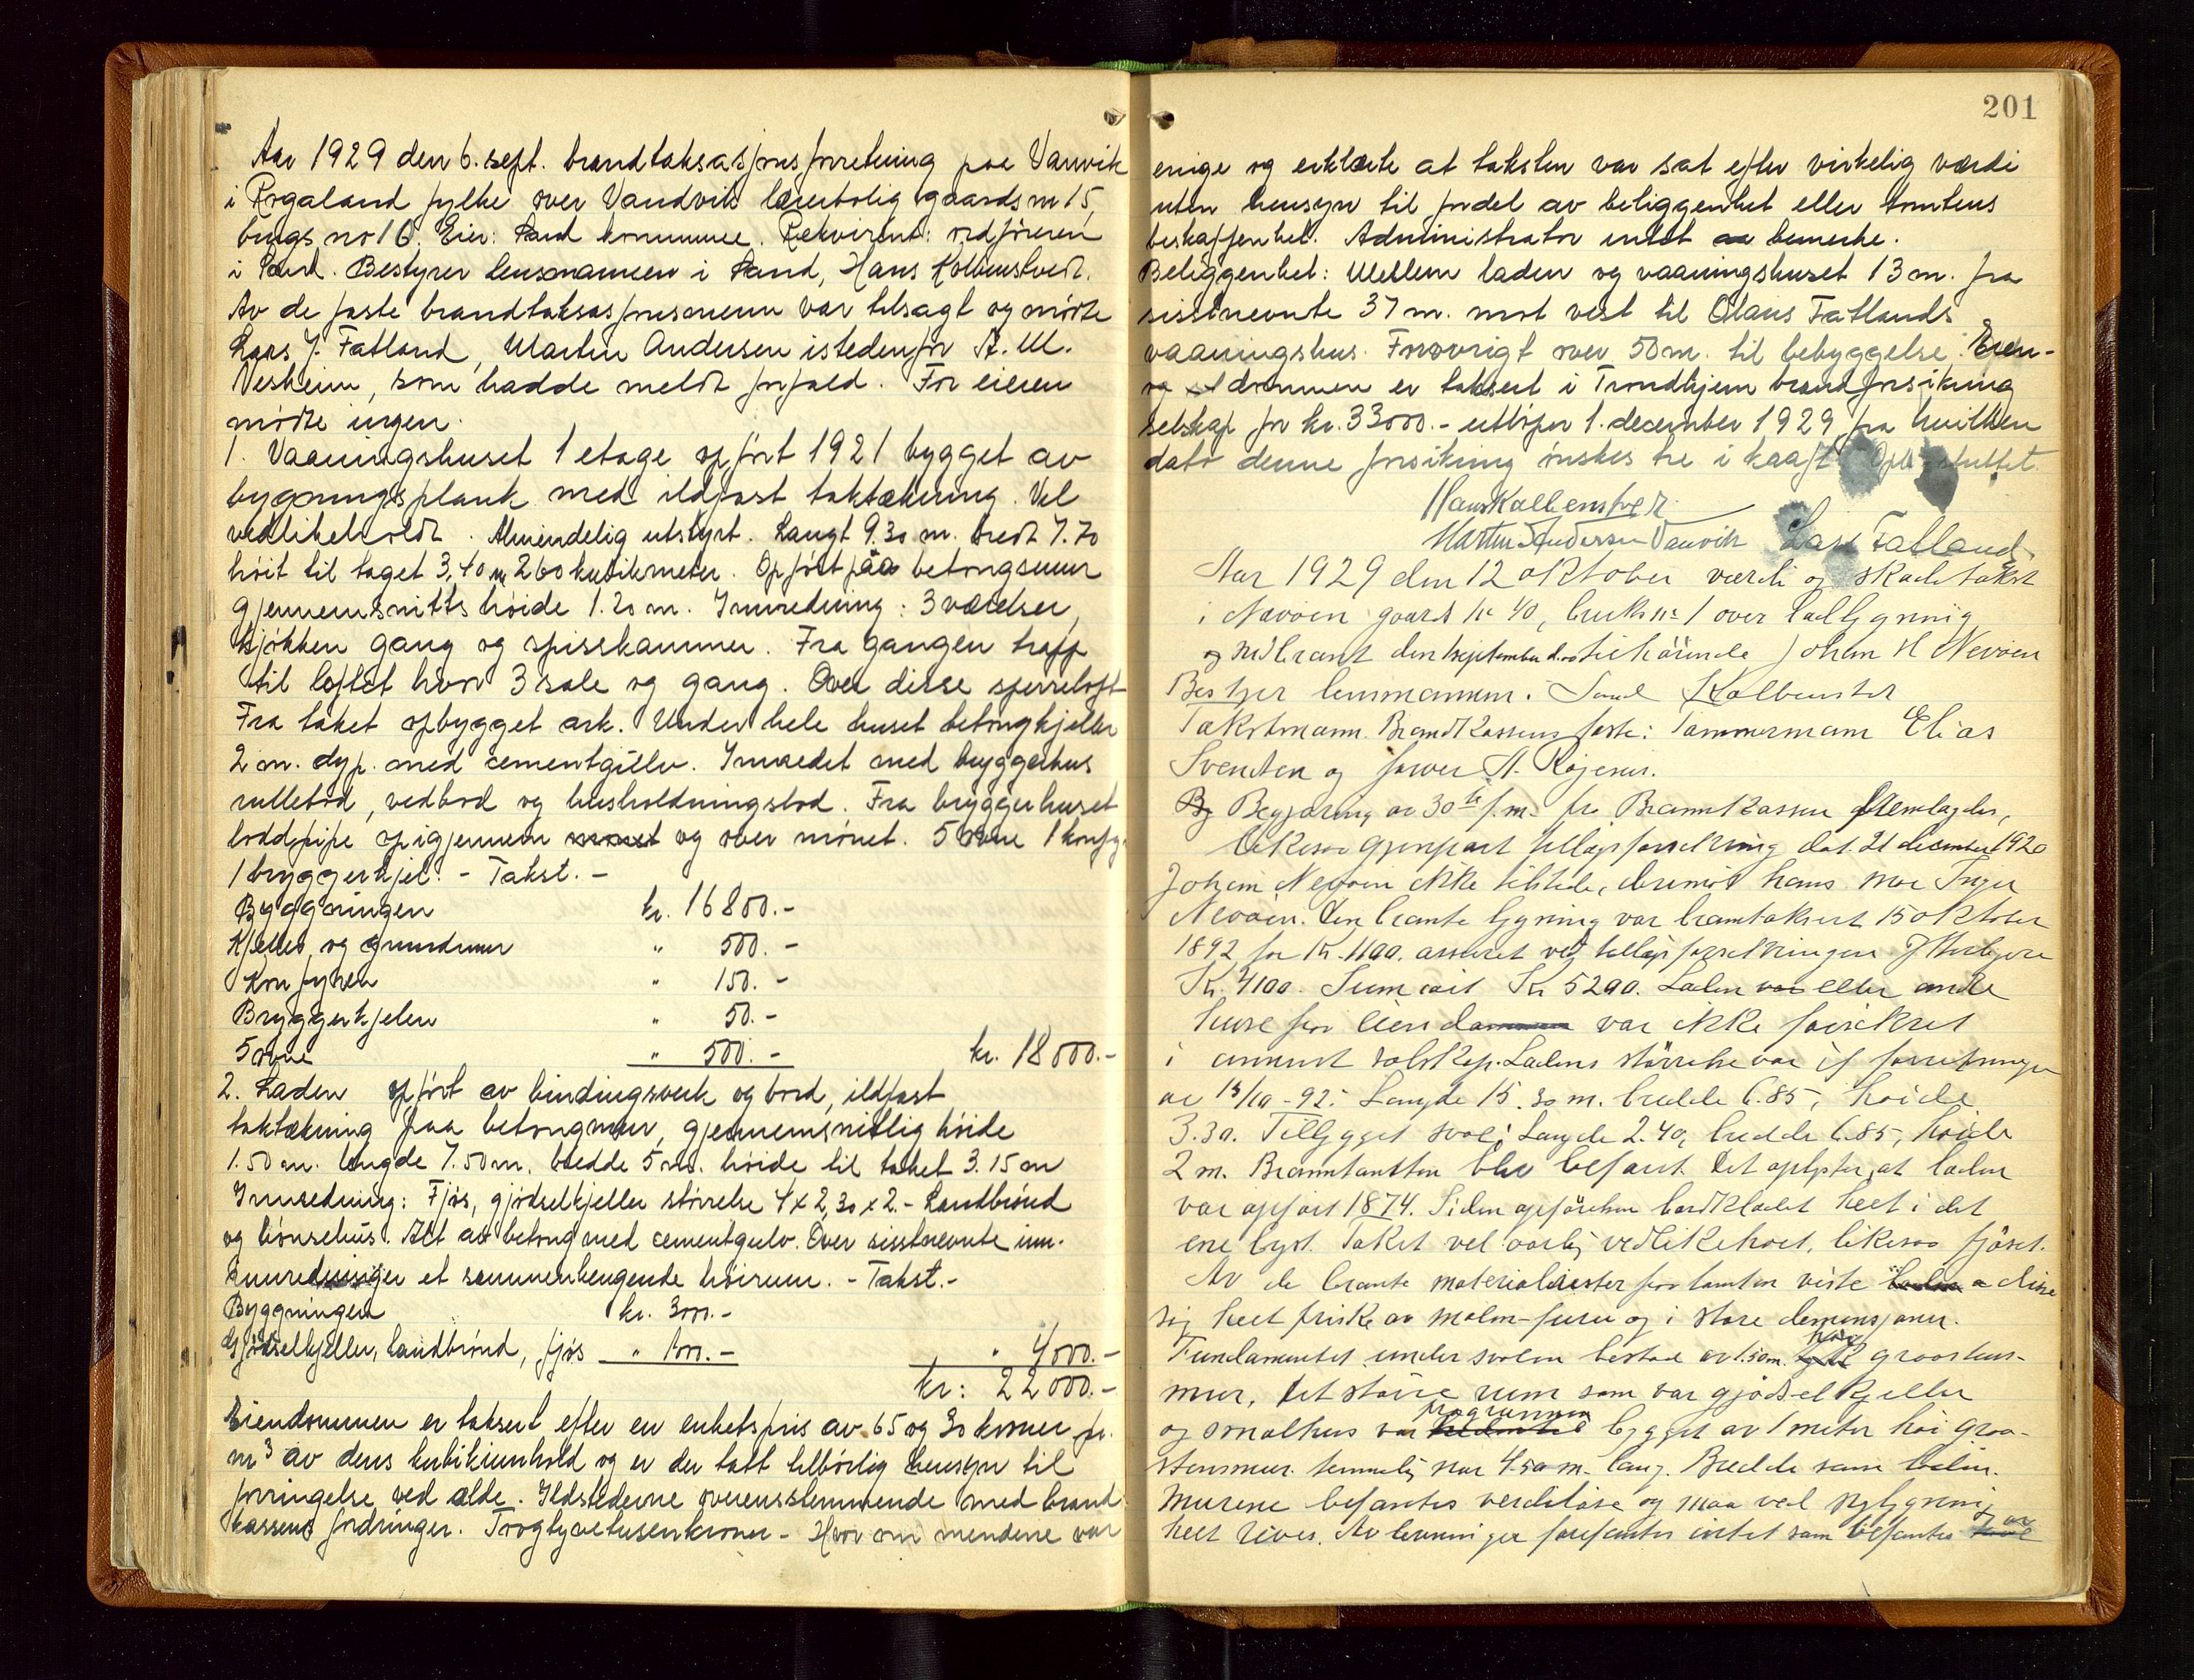 Aar 1929 den 6. sept. brandtaksasjonsforretning paa Vanvik
i Rogaland fylke over Vandvik lærerbolig gaardsnr 15,
brugs no 16. Eier: Sand kommune. Rekvirent: ordføreren
i Sand. Bestyrer lensmannen i Sand, Hans Kolbenstvedt.
Av de faste brandtaksasjonsmenn var tilsagt og møtte
Lars J. Fatland, Martin Andersen istedenfor A. M.
Vesheim, som hadde meldt forfald. For eieren
møtte ingen.
1. Vaaningshuset 1 etage opført 1921 bygget av
bygningsplank med ildfast taktækning. Vel
vedlikeholdt. Almindelig utstyrt. Langt 9.30 m. bredt 7.70
høit til taget 3,40 m 260 kubikmeter. Opført paa betongmur
gjennemsnitts høide 1.20 m. Innredning: 3 værelser,
kjøkken gang og spisekammer. Fra gangen trapp
til loftet hvor 3 sale og gang. Over disse sperreloft
Fra taket opbygget ark. Under hele huset betongkjeller
2 m. dyp. med cementgulv. Innredet med bryggerhus
rullebod, vedbod og husholdningsbod. Fra bryggerhuset
loddpipe op igjennem mønet og over mønet. 5 ovne 1 komfy.
1 bryggerkjel. - Takst. -
Byggningen kr. 16800.-
Kjeller og grundmur " 500.-
Komfyren " 150.-
Bryggerkjelen " 50.-
5 ovne " 500.- kr. 18000.-
2. Laden opført av bindingsverk og bord, ildfast
taktækning paa betongmur, gjennemsnitlig høide
1.50 m. længde 7.50 m. bredde 5 m. høide til taket 3.15 m
Innredning: Fjøs, gjødselkjeller størrelse 4 x 2,30 x 2.- Landbrønd
og hønsehus. Alt av betong med cementgulv. Over sisstnevnte inn-
et sammenhengende høirum. - Takst.-
Byggningen kr. 3000.-
Gjødselkjeller, Landbrønd, fjøs " 1000.- " 4000.-
kr: 22000.-
Eiendommen er taksert efter en enhetspris av 65 og 30 kroner pr.
m3 av dens kubikinnhold og er der tatt tilbørlig hensyn til
forringelse ved ælde. Ildstederne overensstemmende med brand
kassens fordringer. Toogtyvetusenkroner - Hvor om mendene var
201
enige og erklærte at taksten var sat efter virkelig værdi
uten hensyn til fordel av beliggenhet eller tomtens
beskaffenhet. Administrator intet aa bemerke.
Beliggenhet: Mellem laden og vaaningshuset 13 m. fra
sisstnevnte 37 m. mot vest til Olaus Fatlands
vaaningshus. Forøvrigt over 50 m. til bebyggelse. Eien-
dommen er taksert i Trondhjem brandforsikring
selskap for kr. 33000.- utløper 1. december 1929 fra hvilken
dato denne forsikring ønskes tre i kraft. sluttet.
Hans Kolbenstvedt
Martin Andersen Vanvik Lars Fatland
Aar 1929 den 12 oktober værdi og skadetakst
i Nevøen gaards nr 40, bruks nr 1 over ladbygning
nedbrant den september d.a. tilhørende Johan H Nevøen
Bestyrer lensmannen i Sand Kolbenstvt
Takstmann Brandkassens faste: Tømmermann Elias
Svendsen og
Begjæring av 30te f.m. fra Brannkassen fremlagdes,
likesaa gjenpart tillægsforsikring dat. 21 desember 1920
Johan Nevøen ikke tilstede, derimot hans mor Inger
Nevøen. Den brante bygning var branntaksert 15 oktober
1892 for Kr. 1100. assurert ved tillægsforsikringen Ytterligere
Kr. 4100. Sum ialt Kr 5200. Laden eller andre
huse paa eiendommen var ikke forsikret
i annent selskap. Ladens størrelse var if forretningen
av 15/10-92: Længde 15.30 m. bredde 6.85, høide
3.30. Tilbygget sval: Længde 2.40, bredde 6.85, høide
2 m. Branntomten blev befart. Det oplystes, at laden
var opført 1874. Siden opførelsen bordklædt helt i det
ene byst. Taket vel aarlig vedlikeholt, likesaa fjøset.
Av de brante materialrester paa tomten viste disse
sig helt friske av malm-furu og i store demensjoner.
Fundamentet under svalen bestod av 1.50 m. høg graastens-
mur. Det større rum som var gjødselkjeller
og smalhus var bygget av 1 meter høi graa-
stensmur. temmelig nær 4.50 m. lang. Bredde som laden.
Murene befantes verdiløse og maa ved nybygning
helt rives. Av levninger forefantes intet som befantes av